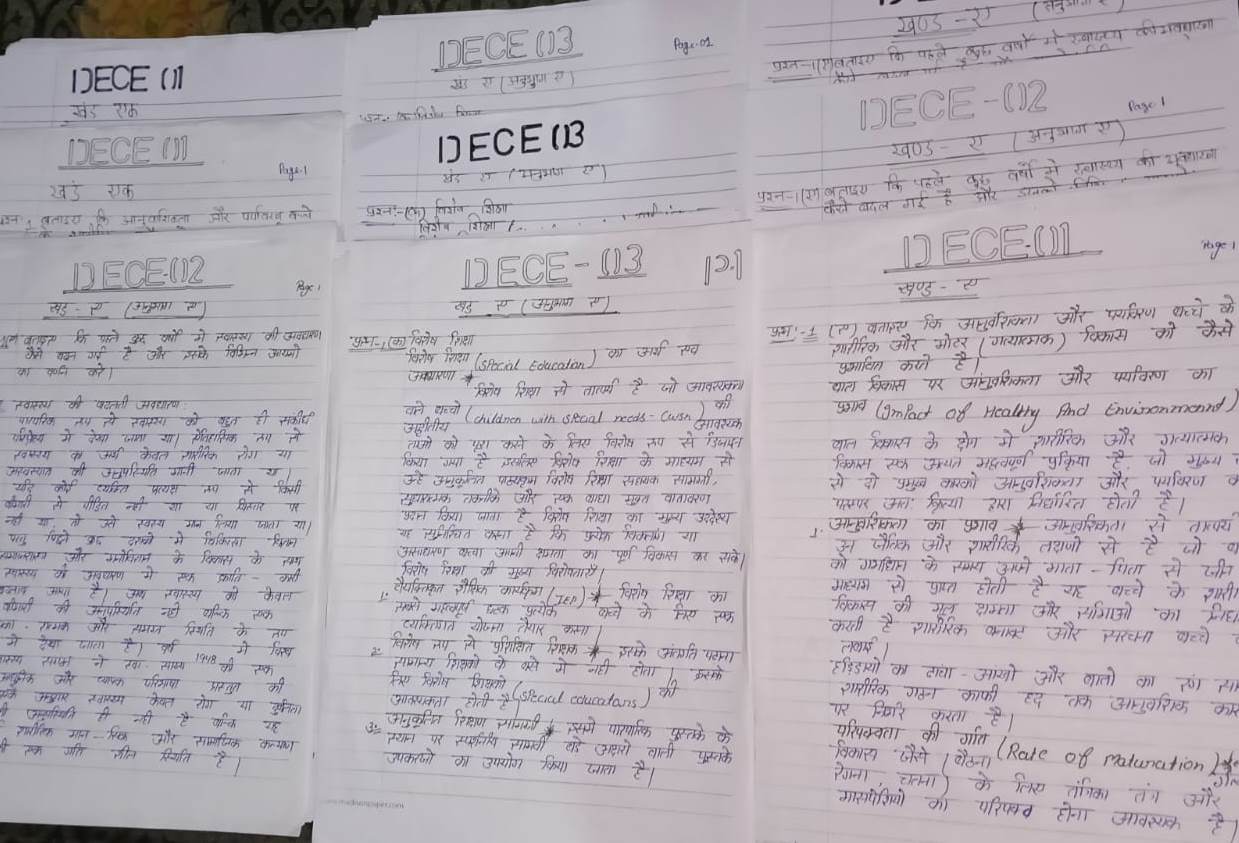 DECE 01
खंड एक
DECE 01
Page.1
खंड एक
प्रश्न 1 बताइए कि आनुवंशिकता और पर्यावरण बच्चे
DECE 03
Page-02
खंड ए (अनुभाग ए)
DECE 03
खंड ए (अनुभाग ए)
प्रश्न:-(क) विशेष शिक्षा
विशेष शिक्षा
खण्ड - ए
प्रश्न-1(ए) बताइए कि पहले कुछ वर्षों में स्वास्थ्य की अवधारणा
DECE-02
Page 1
खण्ड - ए (अनुभाग ए)
प्रश्न-1(ए) बताइए कि पहले कुछ वर्षों से स्वास्थ्य की
कैसे बदल गई है और
DECE-02
Page 1
खंड - ए (अनुभाग ए)
बताइए कि पहले कुछ वर्षो में स्वास्थ्य की अवधारणा
कैसे बदल गई है और इसके विभिन्न आयामो
का वर्णन करे|
स्वास्थ्य की बदलती अवधारणा:
पारंपरिक रूप से स्वास्थ्य को बहुत ही संकीर्ण
परिप्रेक्ष्य में देखा जाता था। ऐतिहासिक रूप से
स्वास्थ्य का अर्थ केवल शारीरिक रोग या
अस्वस्थता की अनुपस्थिति मानी जाता था|
यदि कोई व्यक्ति प्रत्यक्ष रूप से किसी
बीमारी से पीड़ित नहीं था या बिस्तर पर
नहीं था, तो उसे स्वस्थ मान लिया जाता था|
परंतु पिछले कुछ दशको में चिकित्सा विज्ञान
समाजशास्त्र और मनोविज्ञान के विकास के साथ
स्वास्थ्य की अवधारणा में एक क्रांति - कारी
बदलाव आया है| अब स्वास्थ्य को केवल
बीमारी की अनुपस्थिति नहीं बल्कि एक
और समग्र स्थिति के रूप
में देखा जाता है) वर्ष में विश्व
स्वास्थ्य संगठन ने 1948 की एक
आधुनिक और व्यापक परिभाषा प्रस्तुत की
अनुसार स्वास्थ्य केवल रोग या दुर्बलता
की अनुपस्थिति ही नहीं है बल्कि यह
शारीरिक मान - सिक और सामाजिक कल्याण
की एक गति शील स्थिति है|
DECE - 03
P.1
खंड ए (अनुभाग ए)
प्रश्न-1,(क) विशेष शिक्षा
विशेष शिक्षा (Special Education) का अर्थ एवं
अवधारणा
विशेष शिक्षा से तात्पर्य है जो आवश्यकता
वाले बच्चों (children with special needs - Cwsn) की
अद्वितीय आवश्यक
ताओ को पूरा करने के लिए विशेष रूप से डिजाइन
किया गया है इसलिए विशेष शिक्षा के माध्यम से
उन्हे अनुकूलित पाठ्यक्रम विशेष शिक्षा सहायक सामग्री,
सुधारात्मक तकनीके और एक बाधा मुक्त वातावरण
प्रदान किया जाता है विशेष शिक्षा का मुख्य उद्देश्य
यह सुनिश्चित करना है कि प्रत्येक विकलांग या
असाधारण बच्चा अपनी क्षमता का पूर्ण विकास कर सके|
विशेष शिक्षा की मुख्य विशेषताएँ|
1. वैयक्तिकृत शैक्षिक कार्यक्रम (IEP) विशेष शिक्षा का
सबसे महत्वपूर्ण घटक प्रत्येक बच्चे के लिए एक
व्यक्तिगत योजना तैयार करना|
2. विशेष रूप से प्रशिक्षित शिक्षक इसके अंतर्गत पढ़ाना
सामान्य शिक्षको के बस में नहीं होता| इसके
लिए विशेष शिक्षको (special educators) की
आवश्यकता होती है|
3. अनुकूलित शिक्षण सामग्री इसमें पारंपरिक पुस्तके के
स्थान पर स्पर्शनीय सामग्री बड़े अक्षरो वाली पुस्तके
उपकरणों का उपयोग किया जाता है|
DECE-01
Page 1
खण्ड - ए
प्रश्न:-1 (ए) बताइए कि आनुवंशिकता और पर्यावरण बच्चे के
शारीरिक और मोटर (गत्यात्मक) विकास को कैसे
प्रभावित करते है|
बाल विकास पर आनुवंशिकता और पर्यावरण का
प्रभाव (Impact of Healthy And Environmonnd)
बाल विकास के क्षेत्र में शारीरिक और गत्यात्मक
विकास एक अत्यंत महत्वपूर्ण प्रक्रिया है, जो मुख्य
से दो प्रमुख कारको आनुवंशिकता और पर्यावरण
परस्पर अंत: क्रिया द्वारा निर्धारित होती है|
1. आनुवंशिकता का प्रभाव आनुवंशिकता से तात्पर्य
उन जैविक और शारीरिक लक्षणो से है जो
को गर्भाधान के समय अपने माता - पिता से जीन
माध्यम से प्राप्त होती है यह बच्चे के
विकास की मूल क्षमता और सीमाओ का
करती है शारीरिक बनावट और संरचना बच्चे
लंबाई|
हड्डियो का ढांचा - आंखो और बालो का रंग
शारीरिक गठन काफी हद तक आनुवंशिक
पर निर्भर करता है|
परिपक्वता की गति (Rate of maturation)
विकास जैसे (बैठना
रेंगना, चलना) के लिए तंत्रिका तंत्र और
मांसपेशियों का परिपक्व होना आवश्यक है|